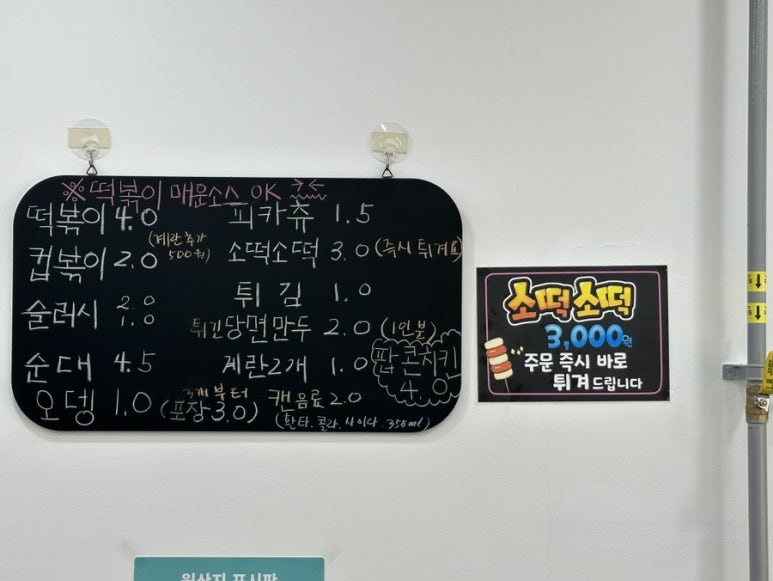 ※떡볶이 매운소스 OK
떡볶이 4.0
(계란추가 500원)
컵볶이 2.0
슬러시 2.0 1.0
순대 4.5
오뎅 1.0 (포장3.0)
3개부터
피카츄 1.5
소떡소떡 3.0 (즉시 튀겨요)
튀김 1.0
튀긴당면만두 2.0 (1인분)
계란2개 1.0
팝콘치킨 4.0
캔음료 2.0
(환타.콜라.사이다.355ml)
소떡소떡
3,000원
주문 즉시 바로
튀겨드립니다
원산지 표시판